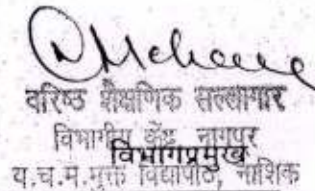 वरिष्ठ शैक्षणिक सल्लागार
विभागीय केंद्र नागपूर
विभागप्रमुख
य.च.म.मुक्त विद्यापीठ, नाशिक